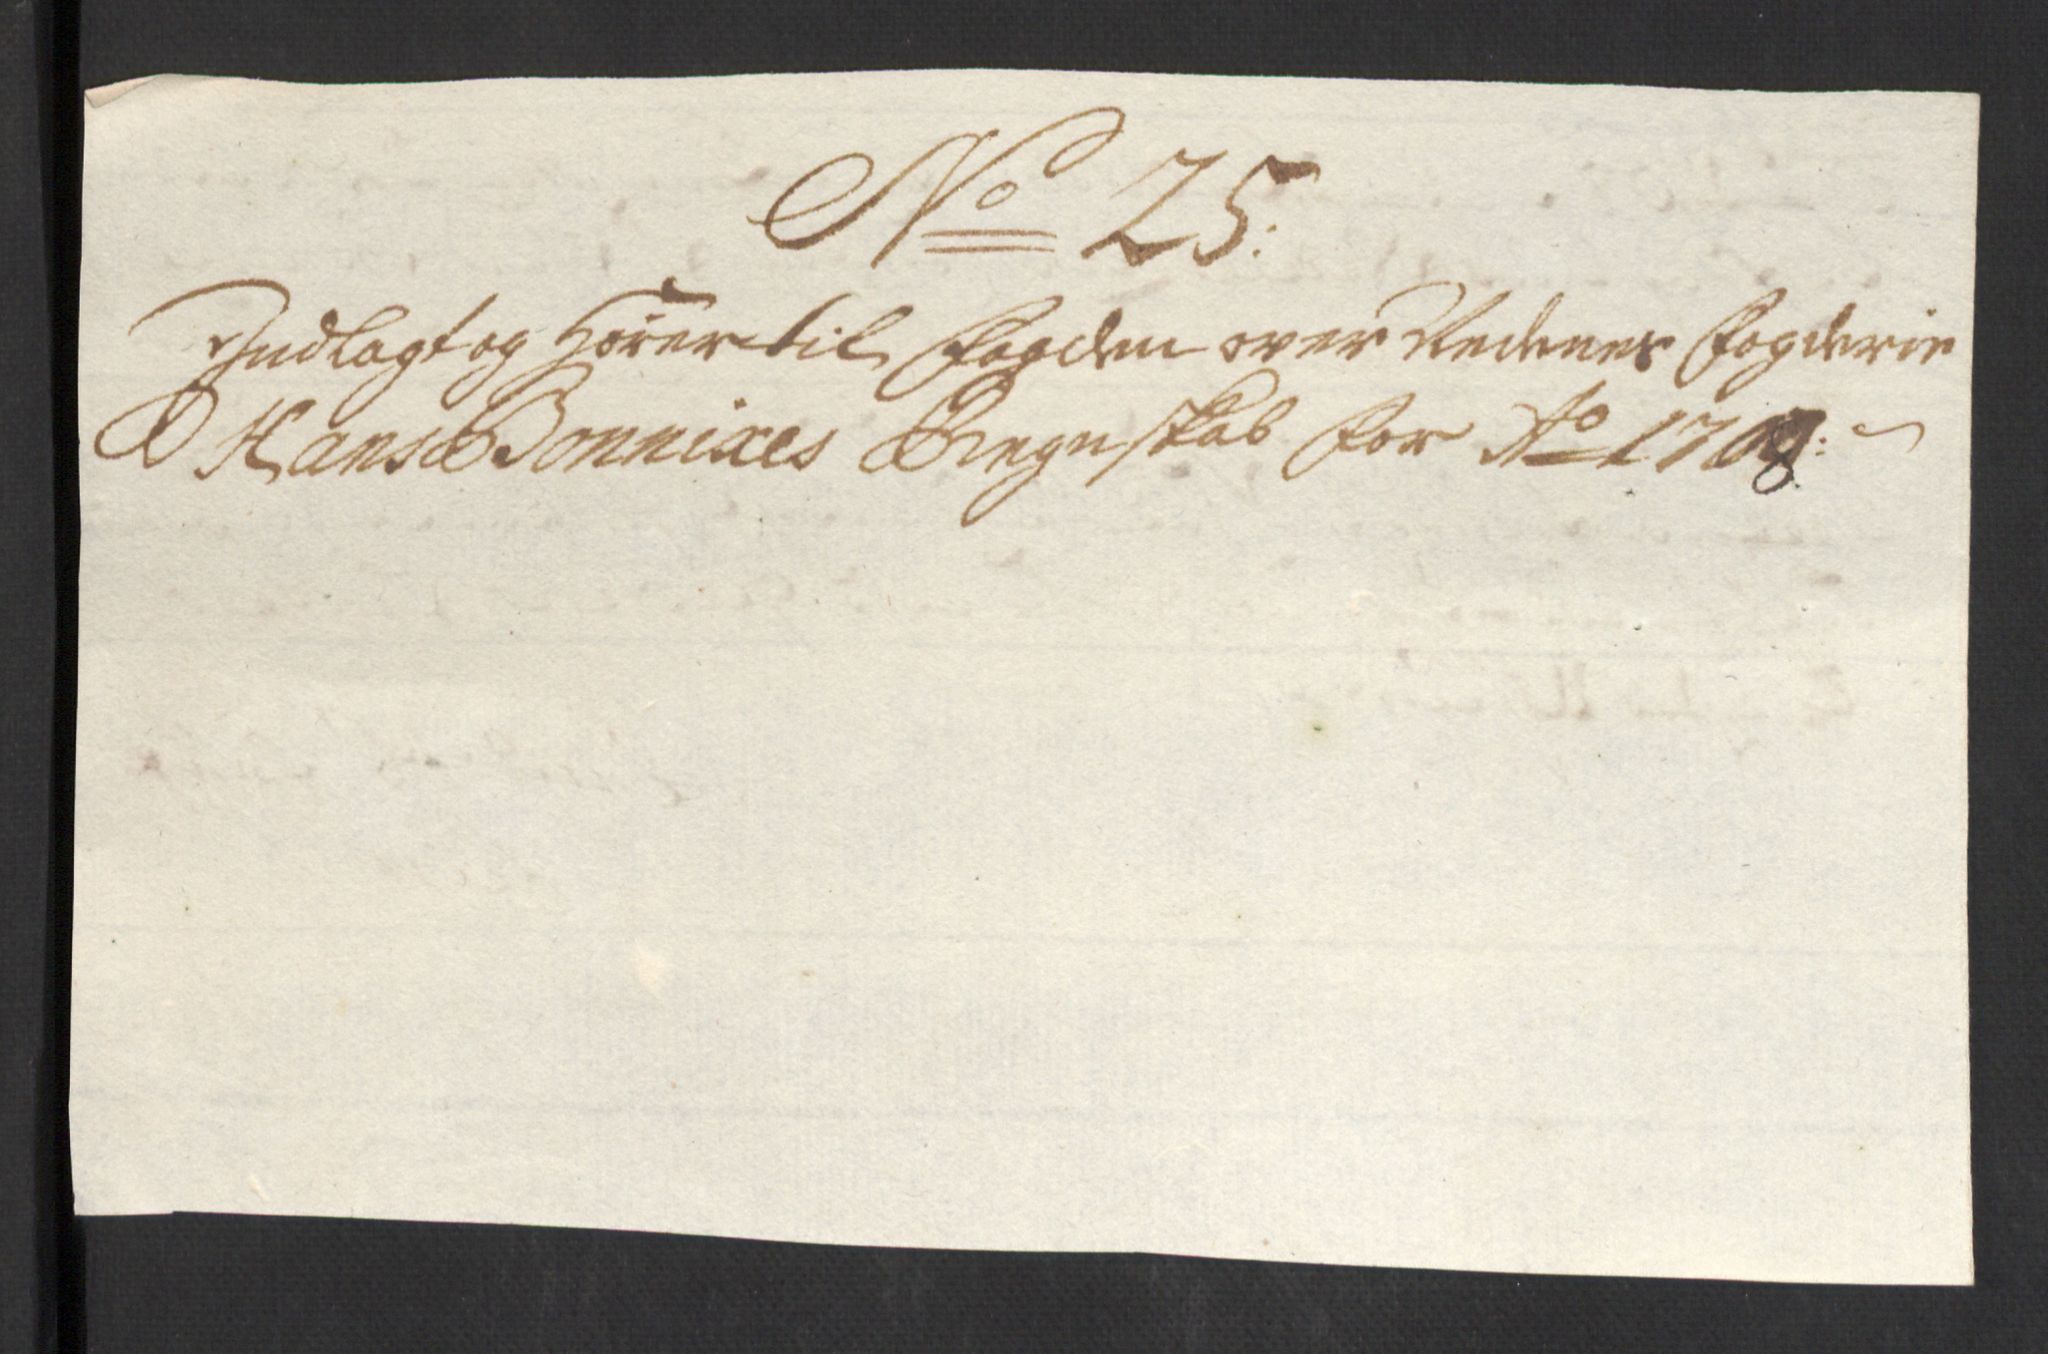 No 25:
Indlagt og Hører til Fogden over Nedenes Fogderie
Hans Bonnixes Regnskab for Ao 1708: